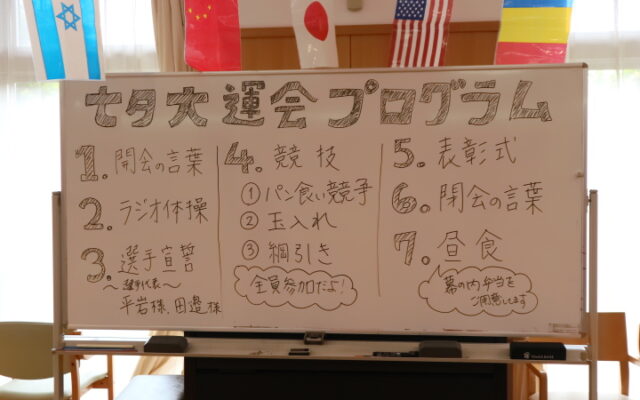 七夕大運会プログラム
1. 開会の言葉
2. ラジオ体操
3. 選手宣誓
～選手代表～
平岩様、田邉様
4. 競技
① パン食い競争
② 玉入れ
③ 綱引き
全員参加だよ!
5. 表彰式
6. 閉会の言葉
7. 昼食
幕の内弁当を
ご用意してます